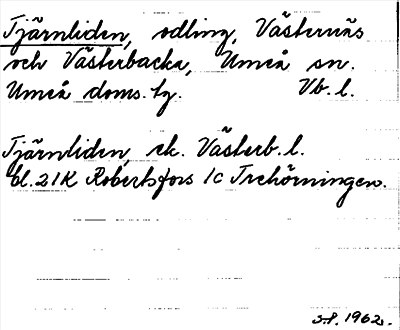 Tjärnliden, odling, Västernäs
och Västerbacka, Umeå sn.
Umeå doms. tg. Vb. l.
Tjärnliden, ek. Västerb. l.
bl. 21K Robertsfors 1c Trehörningen.
S.P. 1962.